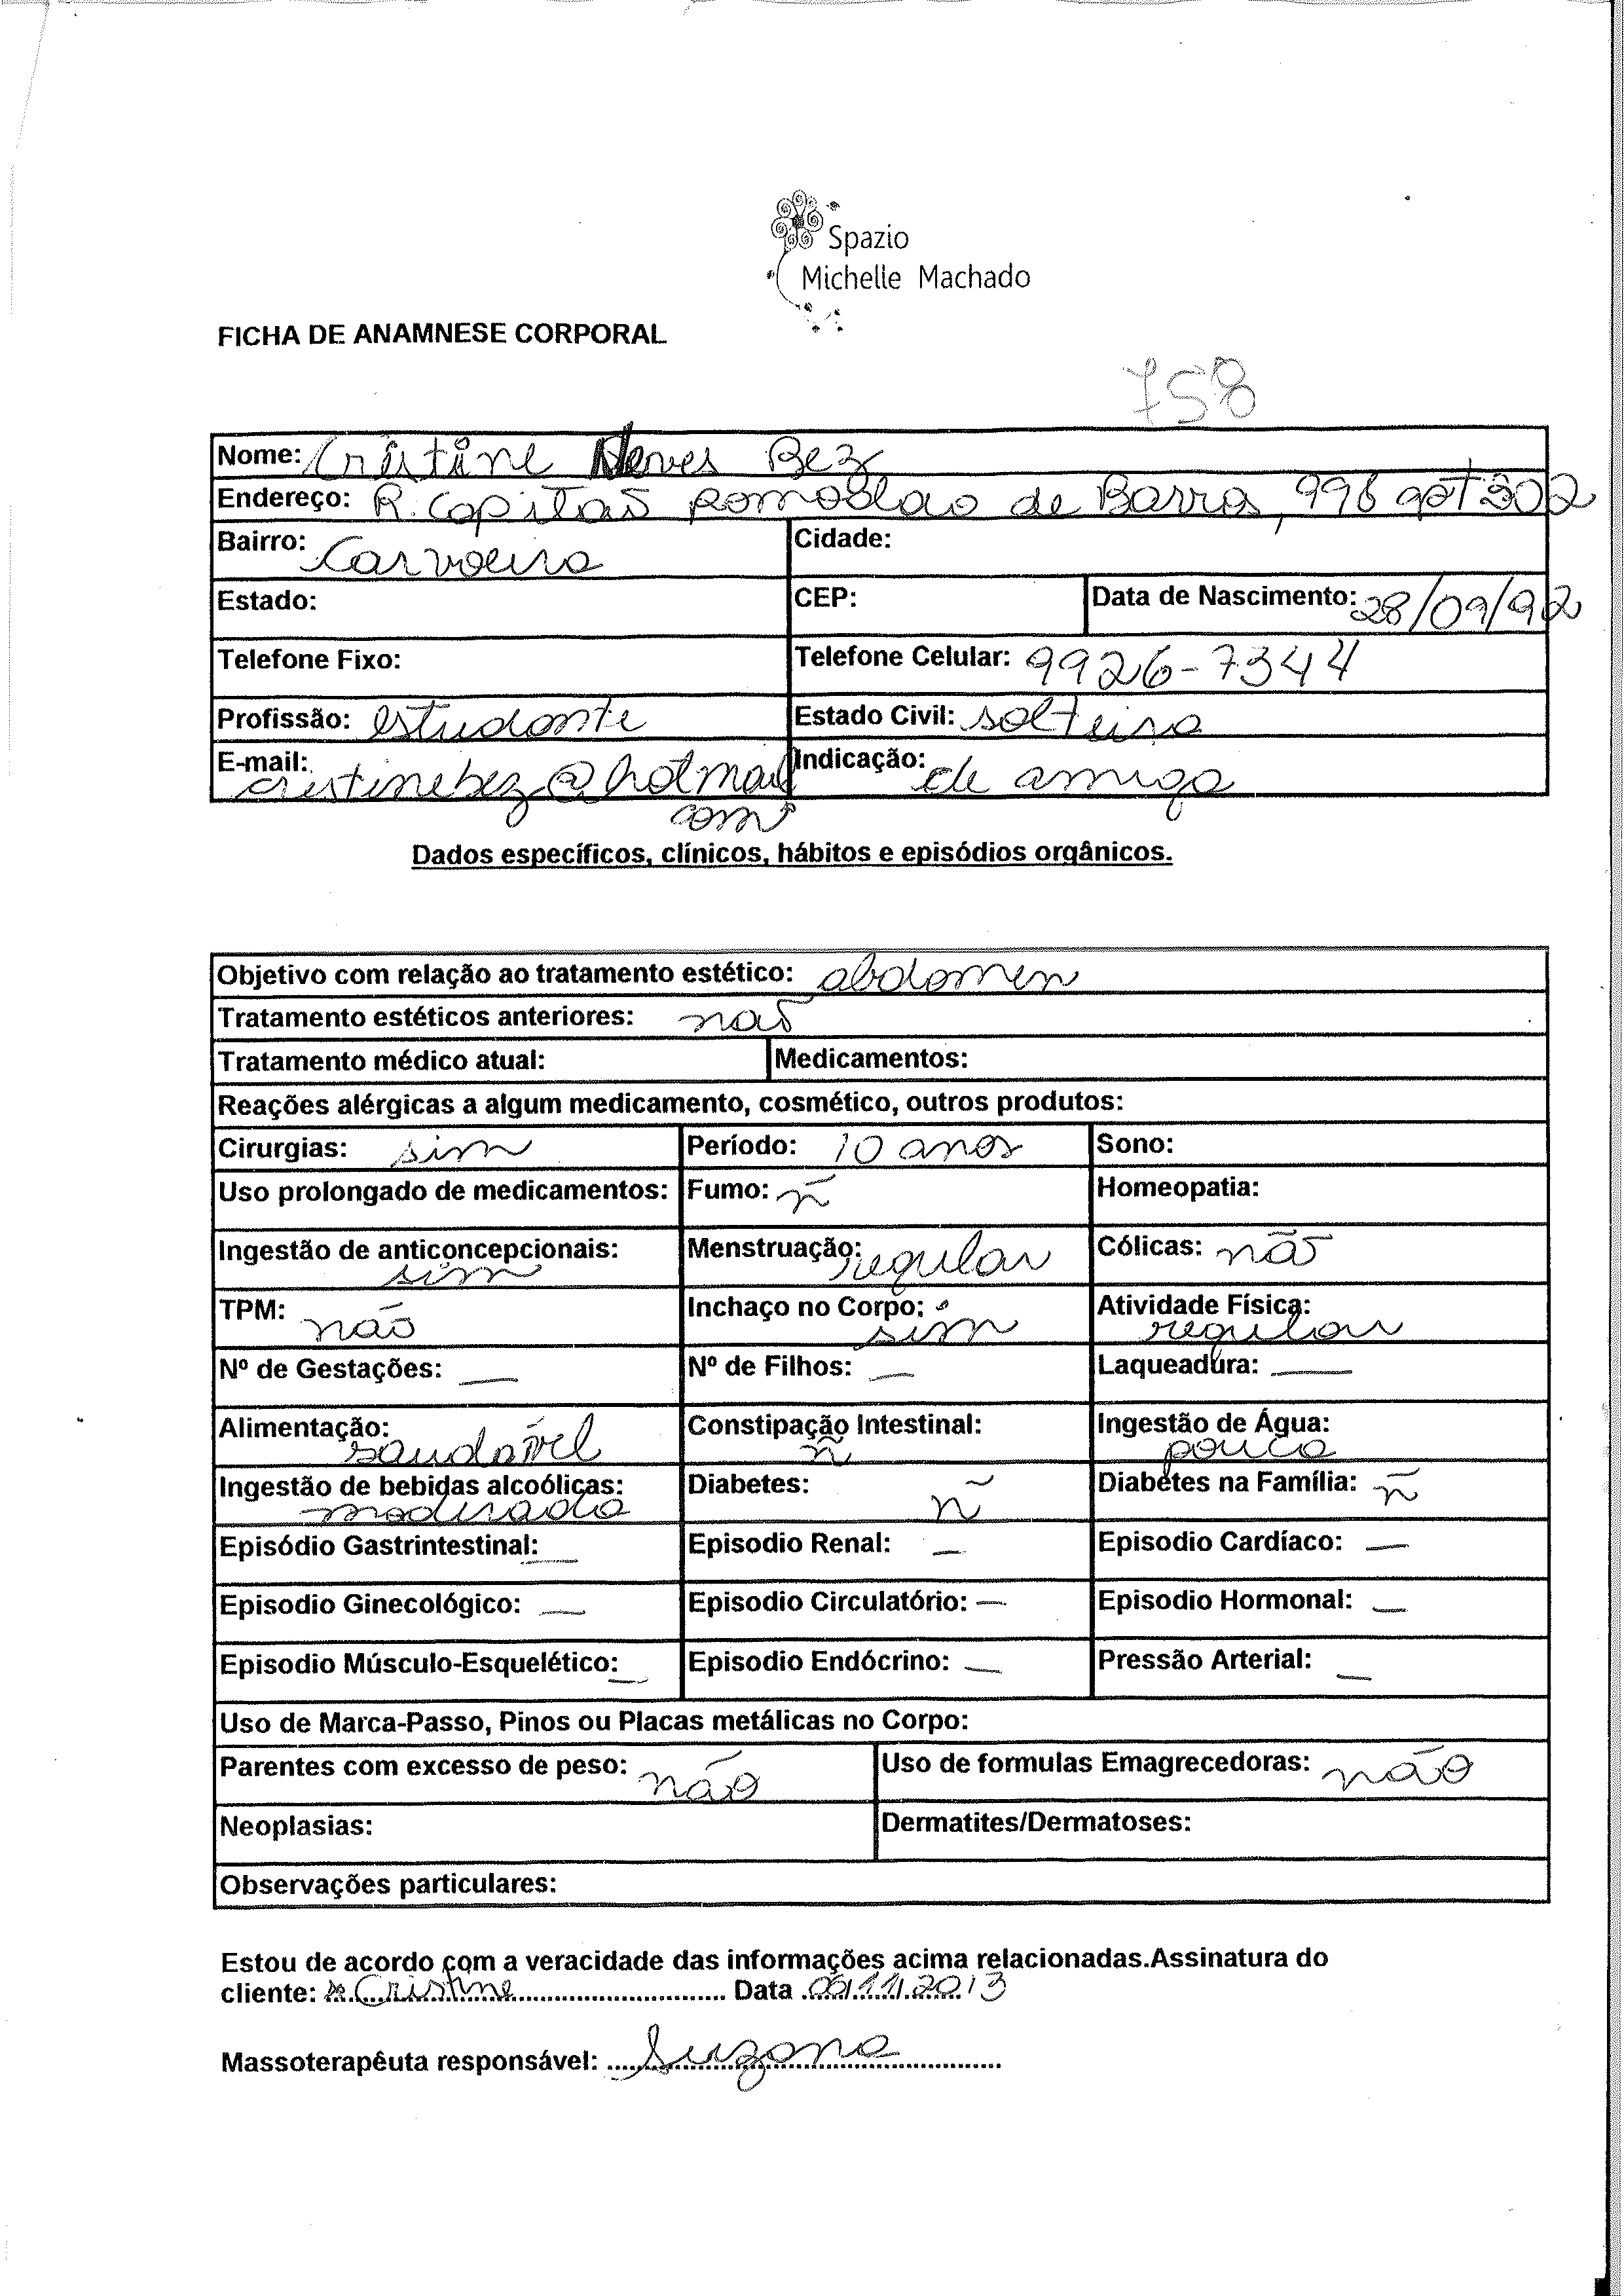 Spazio
Michelle Machado
FICHA DE ANAMNESE CORPORAL
758
Nome: Cristine Neves Bez
Endereço: R. Capitão Romoaldo de Barros, 996 apt 302
Bairro: Carvoeira Cidade:
Estado: CEP: Data de Nascimento: 28/09/92
Telefone Fixo: Telefone Celular: 9926-7344
Profissão: estudante Estado Civil: solteira
E-mail: cristinebez@hotmail Indicação: de amiga
com
Dados específicos, clínicos, hábitos e episódios orgânicos.
Objetivo com relação ao tratamento estético: abdomen
Tratamento estéticos anteriores: não
Tratamento médico atual: Medicamentos:
Reações alérgicas a algum medicamento, cosmético, outros produtos:
Cirurgias: sim Período: 10 anos Sono:
Uso prolongado de medicamentos: Fumo: ñ Homeopatia:
Ingestão de anticoncepcionais: sim Menstruação: regular Cólicas: não
TPM: não Inchaço no Corpo: sim Atividade Física: regular
Nº de Gestações: — Nº de Filhos: — Laqueadura: —
Alimentação: saudável Constipação Intestinal: ñ Ingestão de Água: pouca
Ingestão de bebidas alcoólicas: moderada Diabetes: ñ Diabetes na Família: ñ
Episódio Gastrintestinal: — Episodio Renal: — Episodio Cardíaco: —
Episodio Ginecológico: — Episodio Circulatório: — Episodio Hormonal: —
Episodio Músculo-Esquelético: — Episodio Endócrino: — Pressão Arterial: —
Uso de Marca-Passo, Pinos ou Placas metálicas no Corpo:
Parentes com excesso de peso: não Uso de formulas Emagrecedoras: não
Neoplasias: Dermatites/Dermatoses:
Observações particulares:
Estou de acordo com a veracidade das informações acima relacionadas.Assinatura do
cliente: x Cristine Data 2013
Massoterapêuta responsável: Suzana